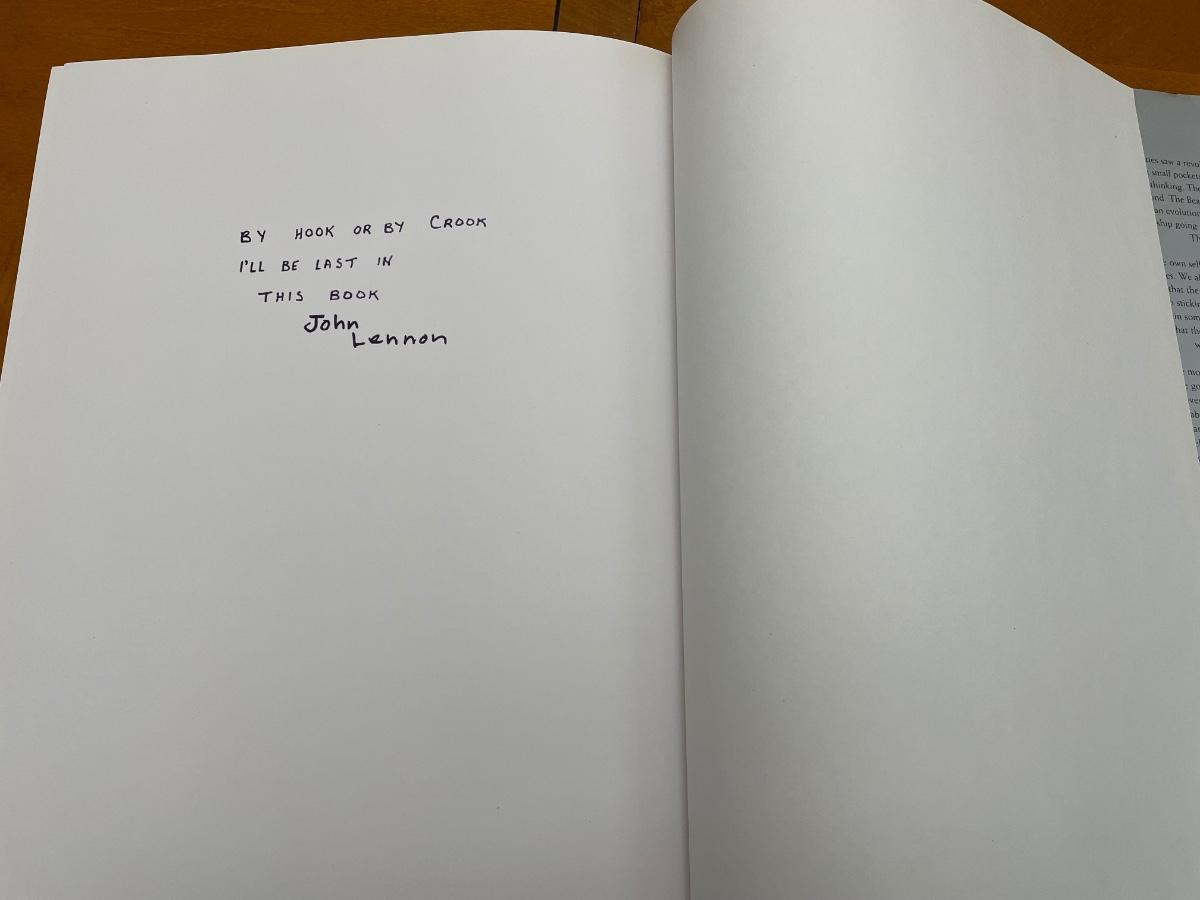 BY HOOK OR BY CROOK
I'LL BE LAST IN
THIS BOOK
John
Lennon
saw a revo
small pocket
thinking. The
The Bea
an evolution
going
own sel
We a
that the
stickin
in som
that th
mo